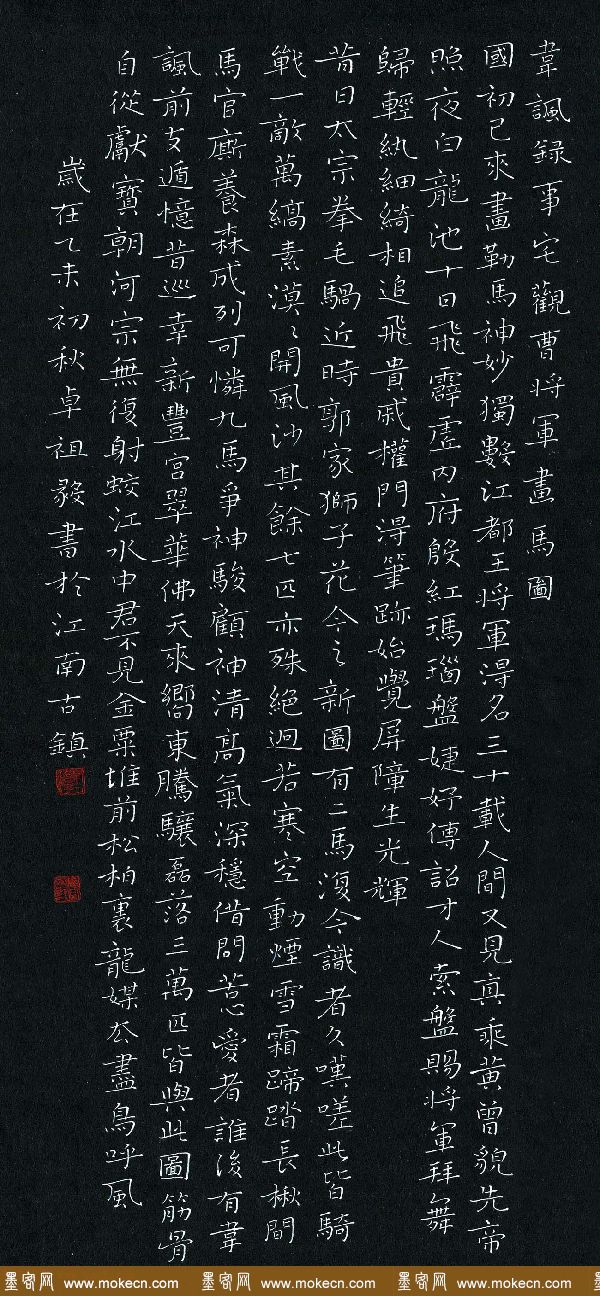 韋諷録事宅觀曹将軍畫馬圖
國初已來畫勒馬神妙獨數江都王将軍淂名三十載人間又見真乘黄曾貌先帝
照夜白龍池十日飛霹靂内府殷紅瑪瑙盤婕妤傳詔才人索盤賜将軍拜舞
歸輕紈細綺相追飛貴戚權門淂筆跡始覺屏障生光輝
昔日太宗拳毛騧近時郭家獅子花今之新圖有二馬復令識者久嘆嗟此皆騎
戰一敵萬縞素漠〻開風沙其餘七匹亦殊絕迥若寒空動煙雪霜蹄踏長楸間
馬官廝養森成列可憐九馬爭神駿顧神清高氣深穩借問苦愛者誰後有韋
諷前支遁憶昔巡幸新豐宮翠華佛天來嚮東騰驤磊落三萬匹皆與此圖筋骨
自從獻寶朝河宗無復射蛟江水中君不見金粟堆前松柏裏龍媒去盡鳥呼風
嵗在乙未初秋卓祖毅書於江南古鎮
墨客网 www.mokecn.com 墨客网 www.mokecn.com 墨客网 www.mokecn.com 墨客网